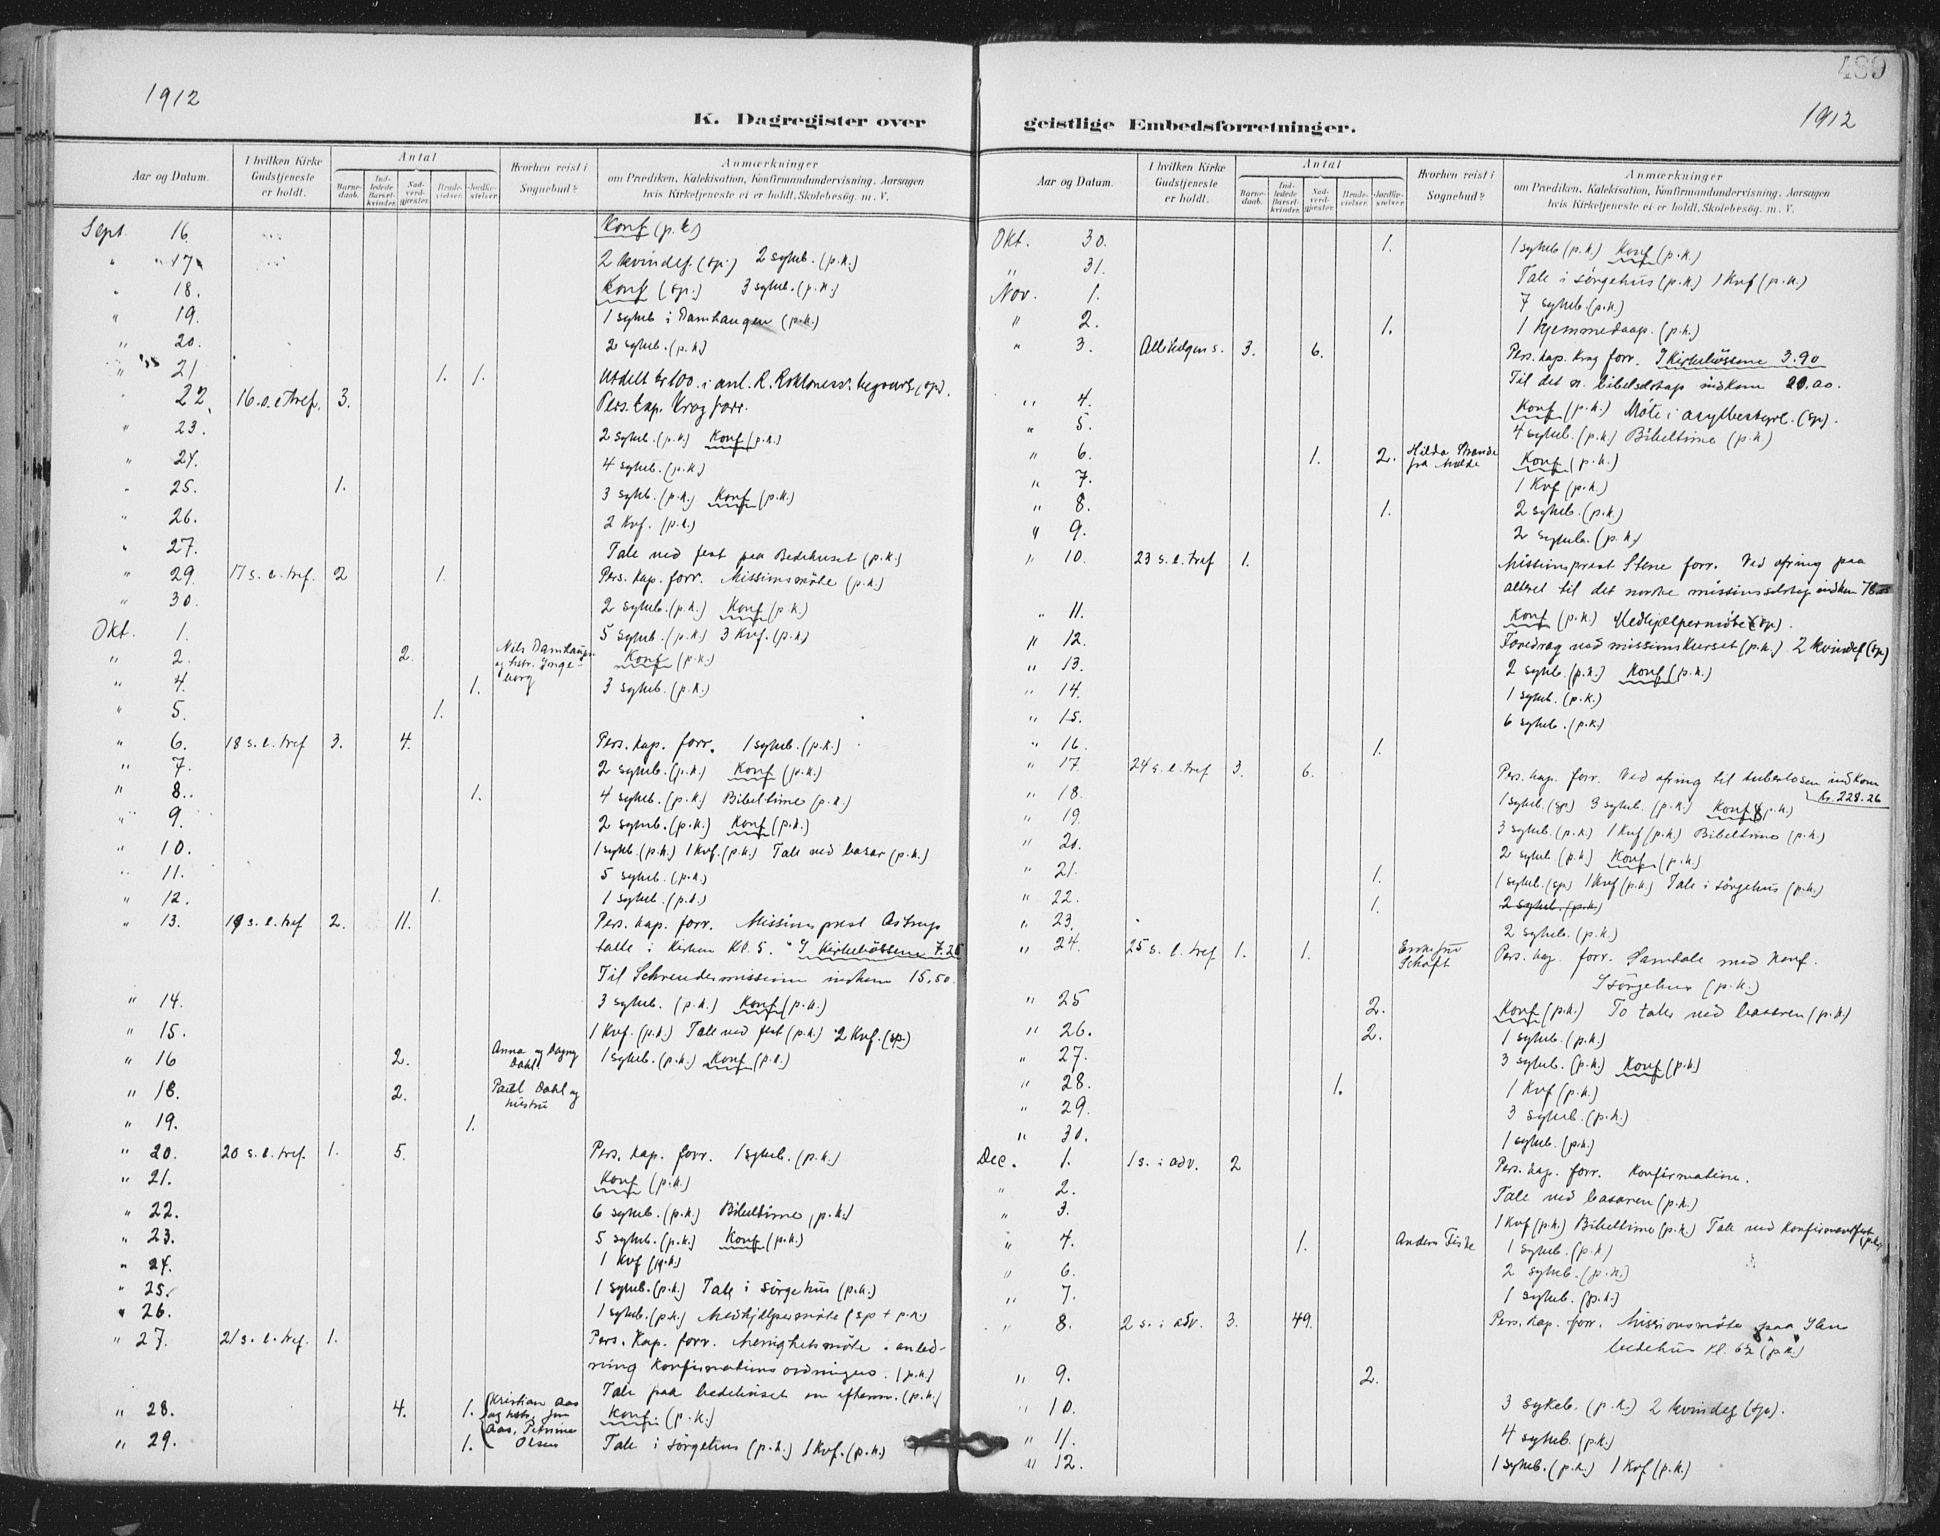 1912
K. Dagregister over
Aar og Datum. I hvilken Kirke Gudstjeneste er holdt. Antal Barnedaab. Indledede Barselkvinder. Nadverdgjester. Brudevielser. Jordfæstelser. Hvorhen reist i Sognebud? Anmærkninger om Prædiken, Katekisation, Konfirmandundervisning, Aarsagen hvis Kirketjeneste ei er holdt, Skolebesøg. m. V.
Sept. 16. Konf (p.k)
" 17 2 kvindef. (sp.) 2 sykeb. (p.k.)
" 18. Konf (sp.) 3 sykeb. (p.k.)
" 19. 1 sykeb i Damhaugen (p.k.)
" 20. 2 sykeb. (p.k)
" 21 1. 1. Utdelt kr 100. i anl. R. begrav. (sp).
" 22. 16. s. e. tref. 3. Pers. kap. Krag forr.
" 23. 2 sykeb. (p.k.) Konf (p.k.)
" 24. 4 sykeb. (p.k.)
" 25. 1. 3 sykb. (p.k.) Konf (p.k.)
" 26. 2 Kvf. (p.k.)
" 27. Tale ved fest paa Bedehuset (p.k.)
" 29. 17 s. e. tref. 2 1. Pers. kap. forr. Missionsmöte (p.k.)
" 30. 2 sykeb. (p.k.) Konf (p.k.)
Okt. 1. 5 sykeb. (p.k.) 3 Kvf. (p.k.)
" 2. 2. Nils Damhaugen og hstr. Ingeborg Konf (p.k.)
" 4. 1. 3 sykeb. (p.k.)
" 5. 1.
" 6. 18 s. e. tref 3. 4. Pers. kap. forr. 1 sykeb. (p.k.)
" 7. 2 sykeb. (p.k.) Konf (p.k.)
" 8. 1. 4 sykeb. (p.k.) Bibeltime (p.k.)
" 9. 2 sykeb. (p.k.) Konf (p.k.)
" 10. 1 sykb. (p.k.) 1 Kvf. (p.k.) Tale ved basar (p.k.)
" 11. 5 sykeb. (p.k.)
" 12. 1. 1 sykeb. (p.k.)
" 13. 19 s. e. tref 2. 11. Pers. kap. forr. Missionsprest Astrup
talte i kirken Kl. 5. I Kirkebössene 7.26
Til Schreudermissionen indkom 15,50.
" 14. 3 sykeb. (p.k.) Konf (p.k.)
" 15. 1 Kvf. (p.k.) Tale ved fest (p.k.) 2 Kvf. (sp.)
" 16 2. Anna og Dagny Dahl. 1 sykeb. (p.k.) Konf (p.k.)
" 18. 2. Paul Dahl og hustru
" 19. 1.
" 20. 20 s. e. tref. 1. 5. Pers. kap. forr. 1 sykeb. (p.k.)
" 21. Konf (p.k.)
" 22. 6 sykeb. (p.k.) Bibeltime (p.k.)
" 23. 5 sykeb. (p.k.) Konf (p.k.)
" 24. 1 Kvf (p.k)
" 25. 1 sykeb. (p.k.) Tale i sörgehus (p.k.)
" 26. 1 sykeb. (p.k.) Medhjælpermöte (sp + p.k)
" 27. 21 s. e. tref. 1. Pers. kap. forr. Menighetsmöte i anled-
ning konfirmationsordningen. (p.k.)
Tale paa bedehuset om efterm. (p.k.)
" 28. 4. 1. Kristian Aas og hstr. Aas, Petrine Olsen Konf. (p.k.)
" 29. 1. Tale i sörgehus (p.k.) 1 Kvf. (p.k.)
489
1912
geistlige Embedsforretninger.
Aar og Datum. I hvilken Kirke Gudstjeneste er holdt. Antal Barnedaab. Indledede Barselkvinder. Nadverdgjester. Brudevielser. Jordfæstelser. Hvorhen reist i Sognebud? Anmærkninger om Prædiken, Katekisation, Konfirmandundervisning, Aarsagen hvis Kirketjeneste ei er holdt, Skolebesøg. m. V.
Okt. 30. 1. 1 sykeb (p.k.) Konf (p.k.)
" 31. Tale i sörgehus (p.k.) 1 Kvf (p.k.)
Nov. 1. 7 sykeb. (p.k.)
" 2. 1. 1 hjemmedaap. (p.k.)
" 3. Allehelgens. 3. 6. Pers. kap. Krag forr. I Kirkebössene 3.90
Til det n. bibelselskap indkom 20.00.
" 4. Konf (p.k.) Möte i asylbestyr. (sp).
" 5. 4 sykeb. (p.k.) Bibeltime (p.k.)
" 6. 1. 2. Hilda Strande fra Molde Konf (p.k.)
" 7. 1 Kvf (p.k.)
" 8. 1. 2 sykeb. (p.k.)
" 9. 2 sykeb. (p.k.)
" 10. 23 s. e. tref 1. Missionsprest Stene forr. Ved ofring paa
alteret til det norske missionsselskap indkom 78
" 11. Konf (p.k.) Medhjælpermöte (sp).
" 12. Foredrag ved missionskurset (p.k.) 2 kvindef (sp.)
" 13. 2 sykb. (p.k.) Konf (p.k.)
" 14. 1 sykeb. (p.k.)
" 15. 6 sykeb. (p.k.)
" 16. 1.
" 17. 24 s. e. tref 3. 6. Pers. kap. forr. Ved ofring til tuberlosen indkom
kr. 228.26
" 18. 1 sykeb. (sp.) 3 sykeb. (p.k.) Konf (p.k.)
" 19. 3 sykeb. (p.k) 1 Kvf (p.k.) Bibeltime (p.k.)
" 20. 2 sykeb (p.k.) Konf (p.k.)
" 21. 1. 1 sykeb. (sp.) 1 Kvf (p.k.) Tale i sörgehus (p.k.)
" 22. 1. 2 sykeb. (p.k.)
" 23. 2 sykeb. (p.k.)
" 24. 25 s. e. tref 1. 1. Enkefru Schaft Pers. kap. forr. Samtale med konf.
I sörgehus (p.k.)
" 25 2. Konf (p.k.) To taler ved basaren (p.k.)
" 26. 2. 1 sykeb. (p.k.)
" 27. 3 sykeb. (p.k.) Konf (p.k)
" 28. 1. 1 Kvf (p.k.)
" 29. 3 sykeb. (p.k.)
" 30. 1 sykeb. (p.k.)
Dec. 1. 1 s. i adv. 2 Pers. kap. forr. Konfirmation.
" 2. Tale ved basaren (p.k.)
" 3. 1 Kvf (p.k.) Bibeltime (p.k.) Tale ved konfirmandfest (p.k.)
" 4. 1. Anders Fiske 1 sykeb. (p.k)
" 6. 2 sykeb. (p.k.)
" 7. 1 sykeb. (p.k.)
" 8. 2 s. i adv. 3. 49. Pers. kap. forr. Missionsmöte paa Ilen
bedehus kl. 6½ (p.k.)
" 9. 2.
" 10. 3 sykeb. (p.k.) 2 kvindef (sp.).
" 11. 4 sykeb. (p.k.)
" 12. 1 sykeb. (p.k.) 1 Kvf (p.k.)